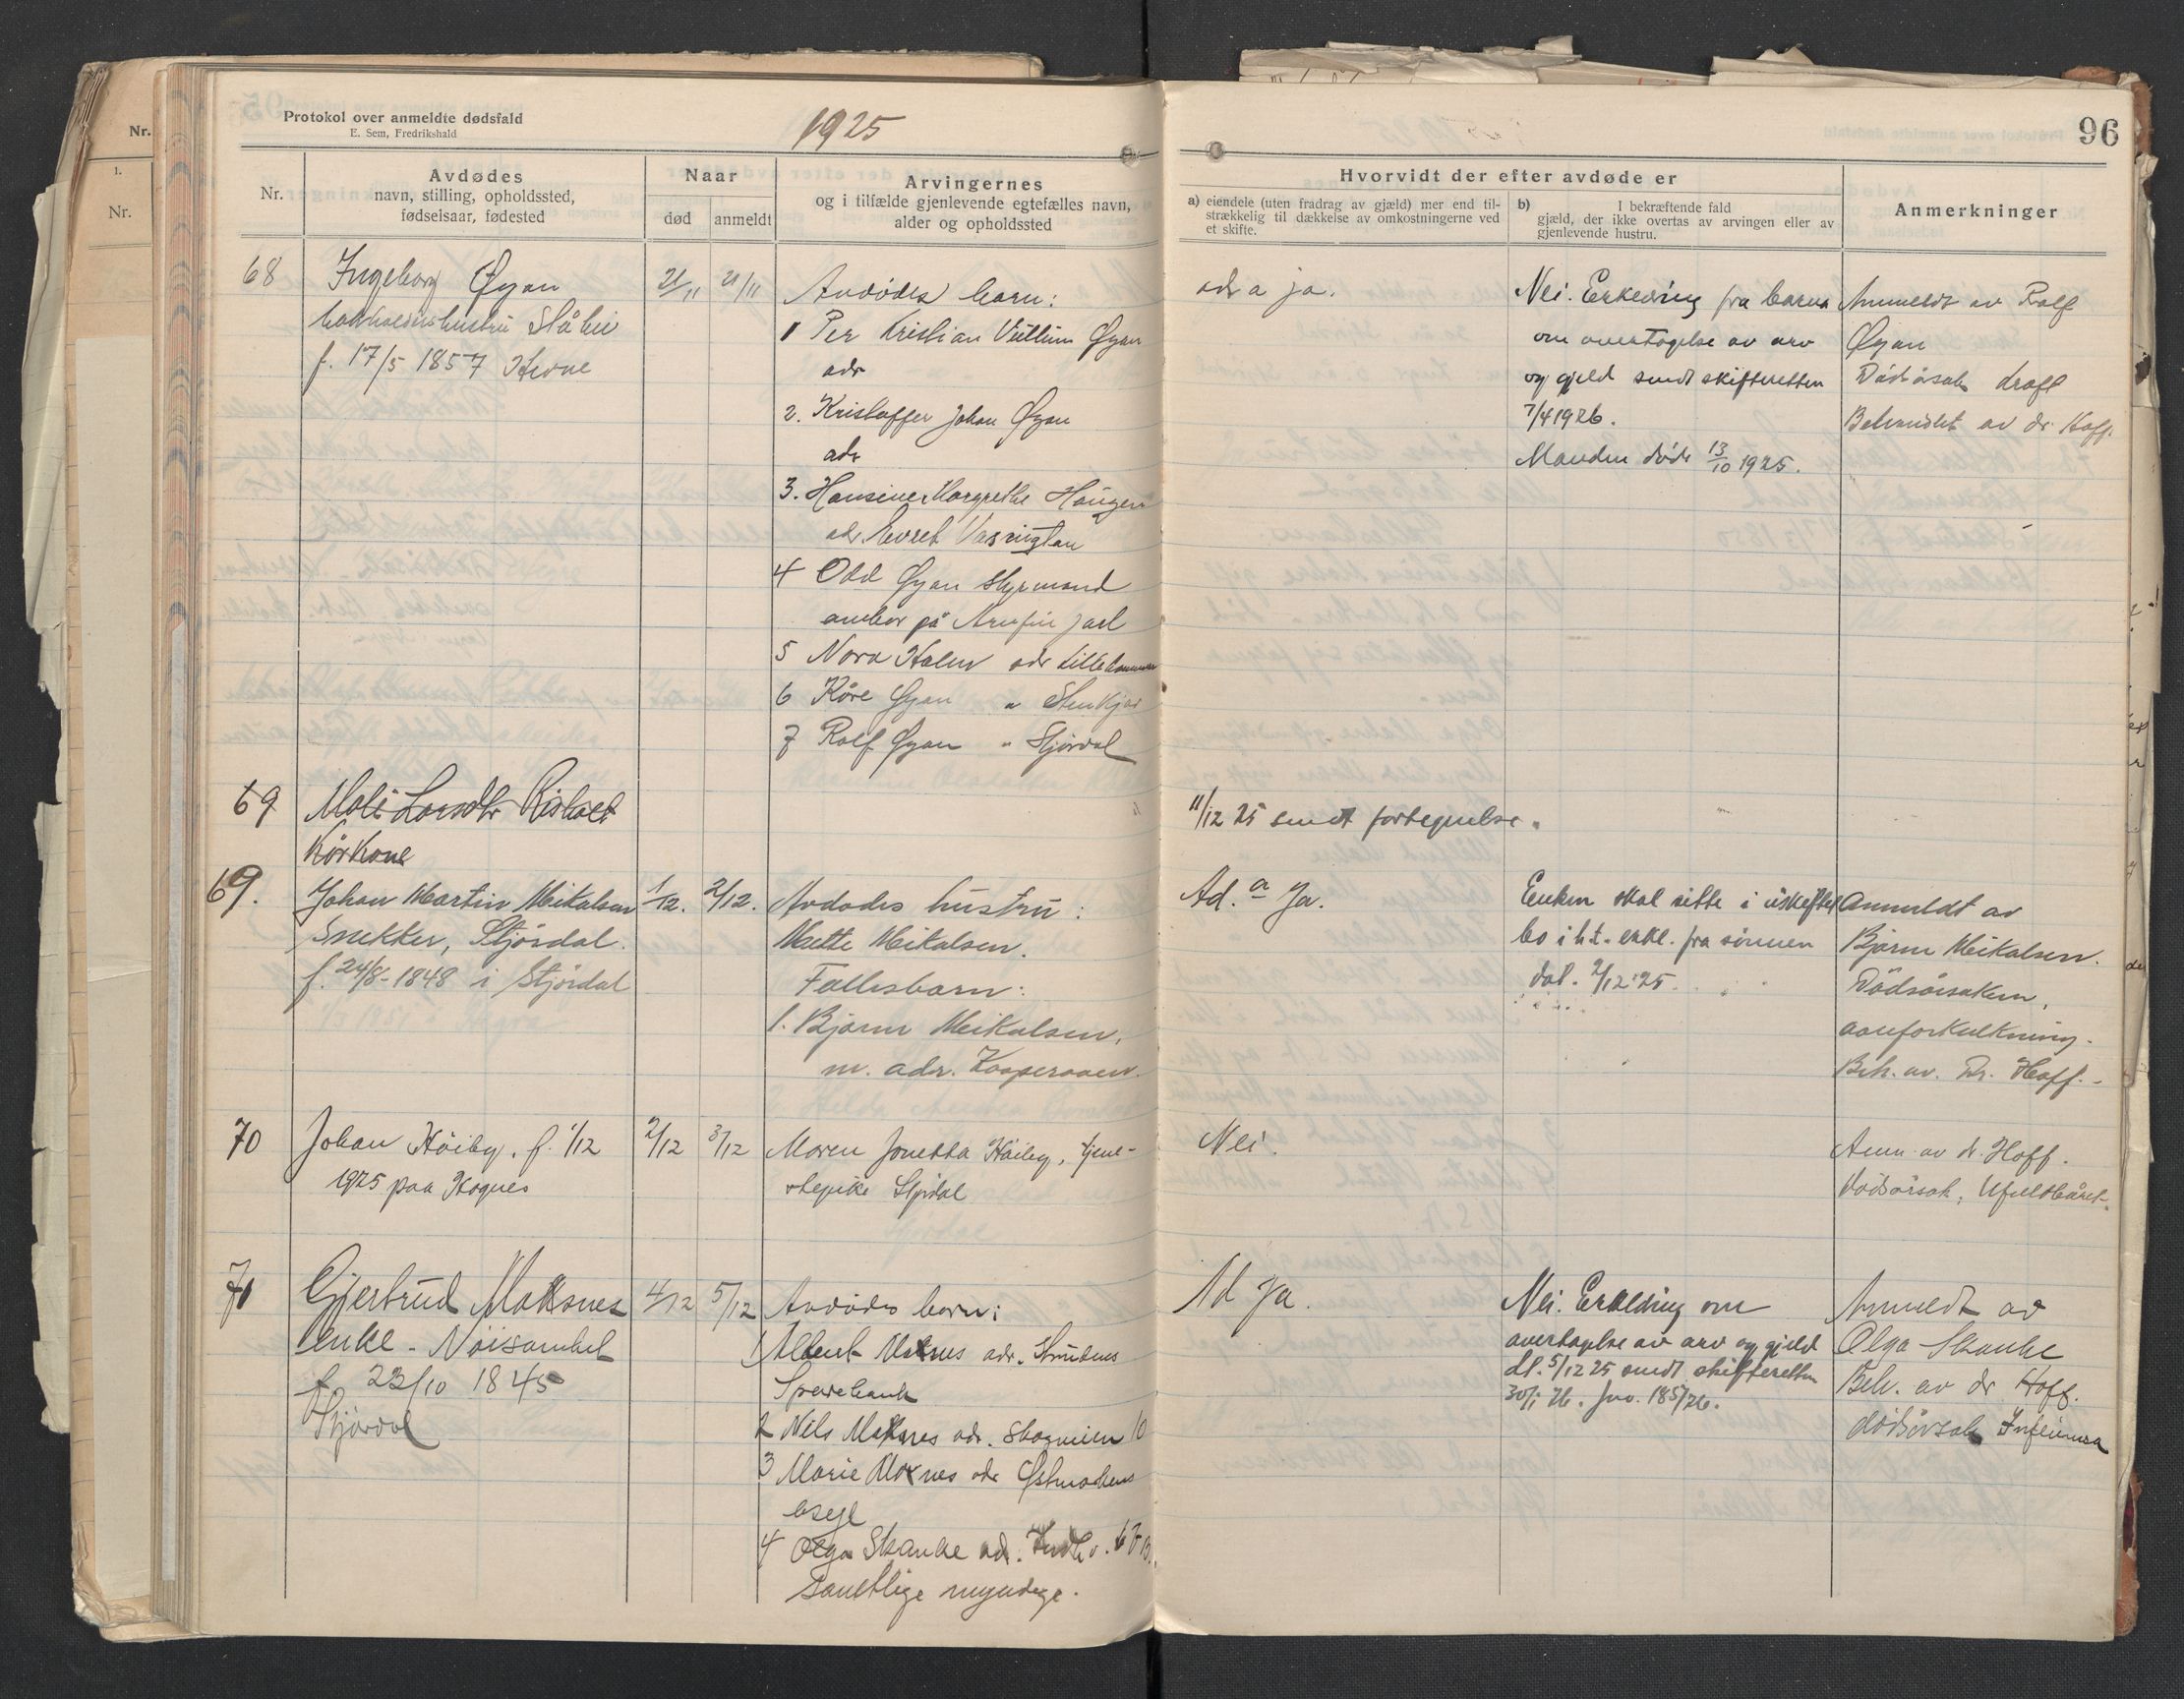 Protokol over anmeldte dødsfald
E. Sem, Fredrikshald
1925
96
Nr.
1.
Nr.
Nr.
Avdødes
navn, stilling, opholdssted,
fødselsaar, fødested
Naar
død
anmeldt
Arvingernes
og i tilfælde gjenlevende egtefælles navn,
alder og opholdssted
Hvorvidt der efter avdøde er
a) eiendele (uten fradrag av gjæld) mer end til-
strækkelig til dækkelse av omkostningerne ved
et skifte.
b) I bekræftende fald
gjæld, der ikke overtas av arvingen eller av
gjenlevende hustru.
Anmerkninger
68
Ingeborg Øyan
f. 17/5 1857 Hevne
21/11
21/11
Avdødes barn:
1 Per Kristian Vullum Øyan
adr
2. Kristoffer Johan Øyan
adr
3. Hansine Margrethe Haugen
adr. Everet Vasington
4 Odd Øyan styrmand
ombor på Arnfin Jarl
5 Nora Halen adr Lillehammer
6 Kåre Øyan " Stenkjær
7 Rolf Øyan " Stjördal
ad a ja.
Nei. Erklæring fra barna
om overtagelse av arv
og gjeld sendt skifteretten
7/4 1926.
Manden döde 13/10 1925.
Anmeldt av Rolf
Øyan
Dödsårsak kræft
Behandlet av dr. Hoff.
69
Mali Larsdtr
Kårkone
11/12 25 sendt fortegnelse.
69.
Johan Martin Meikalsen
Snekker, Stjördal.
f. 24/8-1848 i Stjördal
1/12.
2/12.
Avdødes hustru:
Mette Meikalsen.
Fællesbarn:
1. Bjarne Meikalsen,
m. adr.
Ad. a Ja.
Enken skal sitte i uskiftet
bo i h.t. erkl. fra sönnen
dat. 2/12 '25.
Anmeldt av
Bjarne Meikalsen.
Dödsårsaken,
aareforkalkning.
Beh. av. Dr. Hoff.-
70
Johan Höiby. f. 1/12
1925 paa Hognes
2/12
3/12
Maren Jonetta Höiby, tjene-
stepike Stjördal
Nei.
Anm. av dr. Hoff.
Dödsårsak, Ufuldbåret.
71
Gjertrud Moksnes
enke -
f 23/10 1845
Stjördal
4/12
5/12
Avdödes barn:
1 Albert Moksnes adr.
Sparebank
2 Nels Moksnes adr. Skogveien 10
3 Marie Moksnes adr Østmarkens
asyl
4 Olga Skanke adr. 67 B.
samtlige myndige.
Ad Ja.
Nei. Erklæring om
overtagelse av arv og gjeld
dt. 5/12 25 sendt skifteretten
30/1 26. Jno. 185/26.
Anmeldt av
Olga Skanke
Beh. av dr Hoff.
dödsårsak Infeiunsa